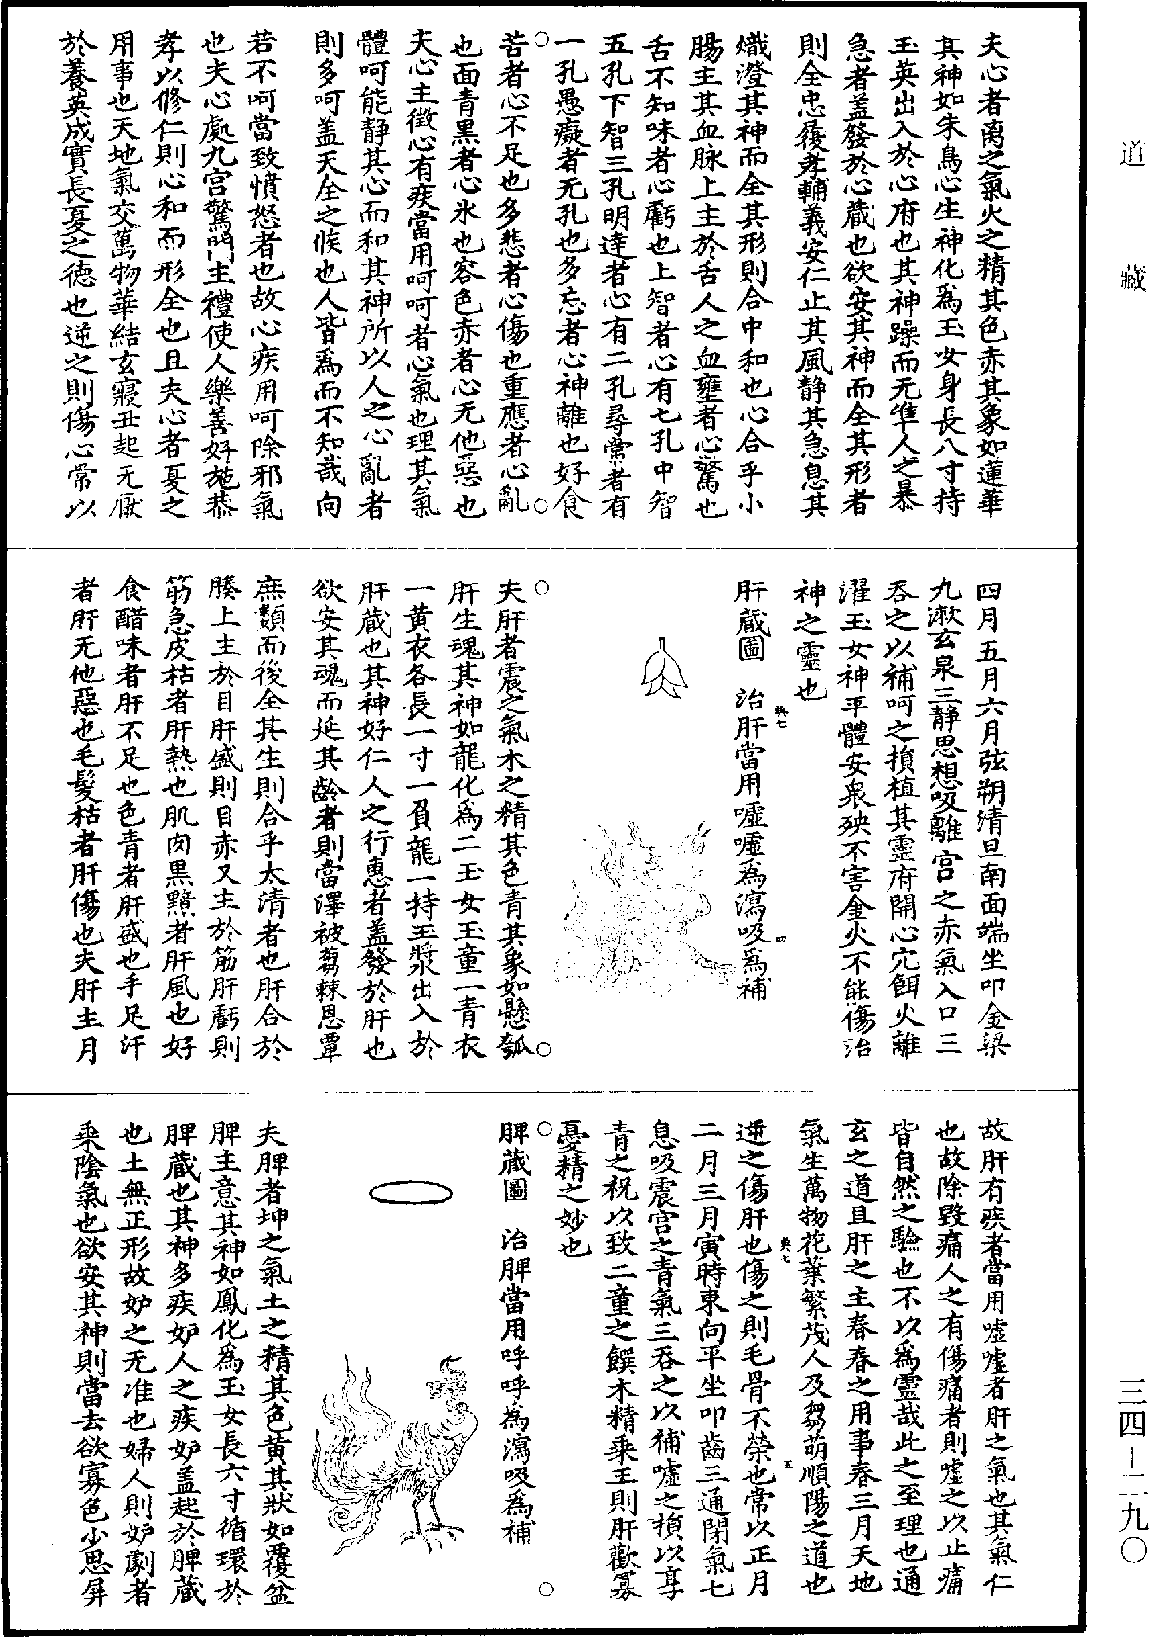 道藏
三四-二九〇
夫心者离之氣火之精其色赤其象如蓮華
其神如朱鳥心生神化爲玉女身長八寸持
玉英出入於心府也其神躁而无準人之暴
急者盖發於心藏也欲安其神而全其形者
則全忠履孝輔義安仁止其風静其急息其
熾澄其神而全其形則合中和也心合乎小
腸主其血脉上主於舌人之血壅者心驚也
舌不知味者心虧也上智者心有七孔中智
五孔下智三孔明達者心有二孔尋常者有
一孔愚癡者无孔也多忘者心神離也好食
苦者心不足也多悲者心傷也重應者心亂
也面青黑者心氷也容色赤者心无他惡也
夫心主徴心有疾當用呵呵者心氣也理其氣
體呵能静其心而和其神所以人之心亂者
則多呵盖天全之候也人皆爲而不知哉向
若不呵當致憤怒者也故心疾用呵除邪氣
也夫心處九宫驚門主禮使人樂善好施恭
孝以修仁則心和而形全也且夫心者夏之
用事也天地氣交萬物華結玄寢丑起无厭
於養英成實長夏之德也逆之則傷心常以
四月五月六月弦朔清旦南面端坐叩金梁
九漱玄泉三静思想吸離宫之赤氣入口三
吞之以補呵之損植其靈府開心穴餌火離
濯玉女神平體安衆殃不害金火不能傷治
神之靈也
肝藏圖 治肝當用噓噓爲瀉吸爲補
夫肝者震之氣木之精其色青其象如懸瓠
肝生魂其神如龍化爲二玉女玉童一青衣
一黄衣各長一寸一負龍一持玉漿出入於
肝藏也其神好仁人之行惠者盖發於肝也
欲安其魂而延其齡者則當澤被蒭棘恩覃
庶類而後全其生則合乎太清者也肝合於
膝上主於目肝盛則目赤又主於筋肝虧則
筋急皮枯者肝熱也肌肉黑黯者肝風也好
食醋味者肝不足也色青者肝盛也手足汗
者肝无他惡也毛髮枯者肝傷也夫肝主月
故肝有疾者當用噓噓者肝之氣也其氣仁
也故除毁痛人之有傷痛者則噓之以止痛
皆自然之驗也不以爲靈哉此之至理也通
玄之道且肝之主春春之用事春三月天地
氣生萬物花葉繁茂人及蒭萌順陽之道也
逆之傷肝也傷之則毛骨不榮也常以正月
二月三月寅時東向平坐叩齒三通閉氣七
息吸震宫之青氣三吞之以補噓之損以享
青之祝以致二童之饌木精乘王則肝歡寡
憂精之妙也
脾藏圖 治脾當用呼呼爲瀉吸爲補
夫脾者坤之氣土之精其色黄其狀如覆盆
脾主意其神如鳳化爲玉女長六寸循環於
脾藏也其神多疾妒人之疾妒盖起於脾藏
也土無正形故妒之无准也婦人則妒劇者
乘陰氣也欲安其神則當去欲寡色少思屏